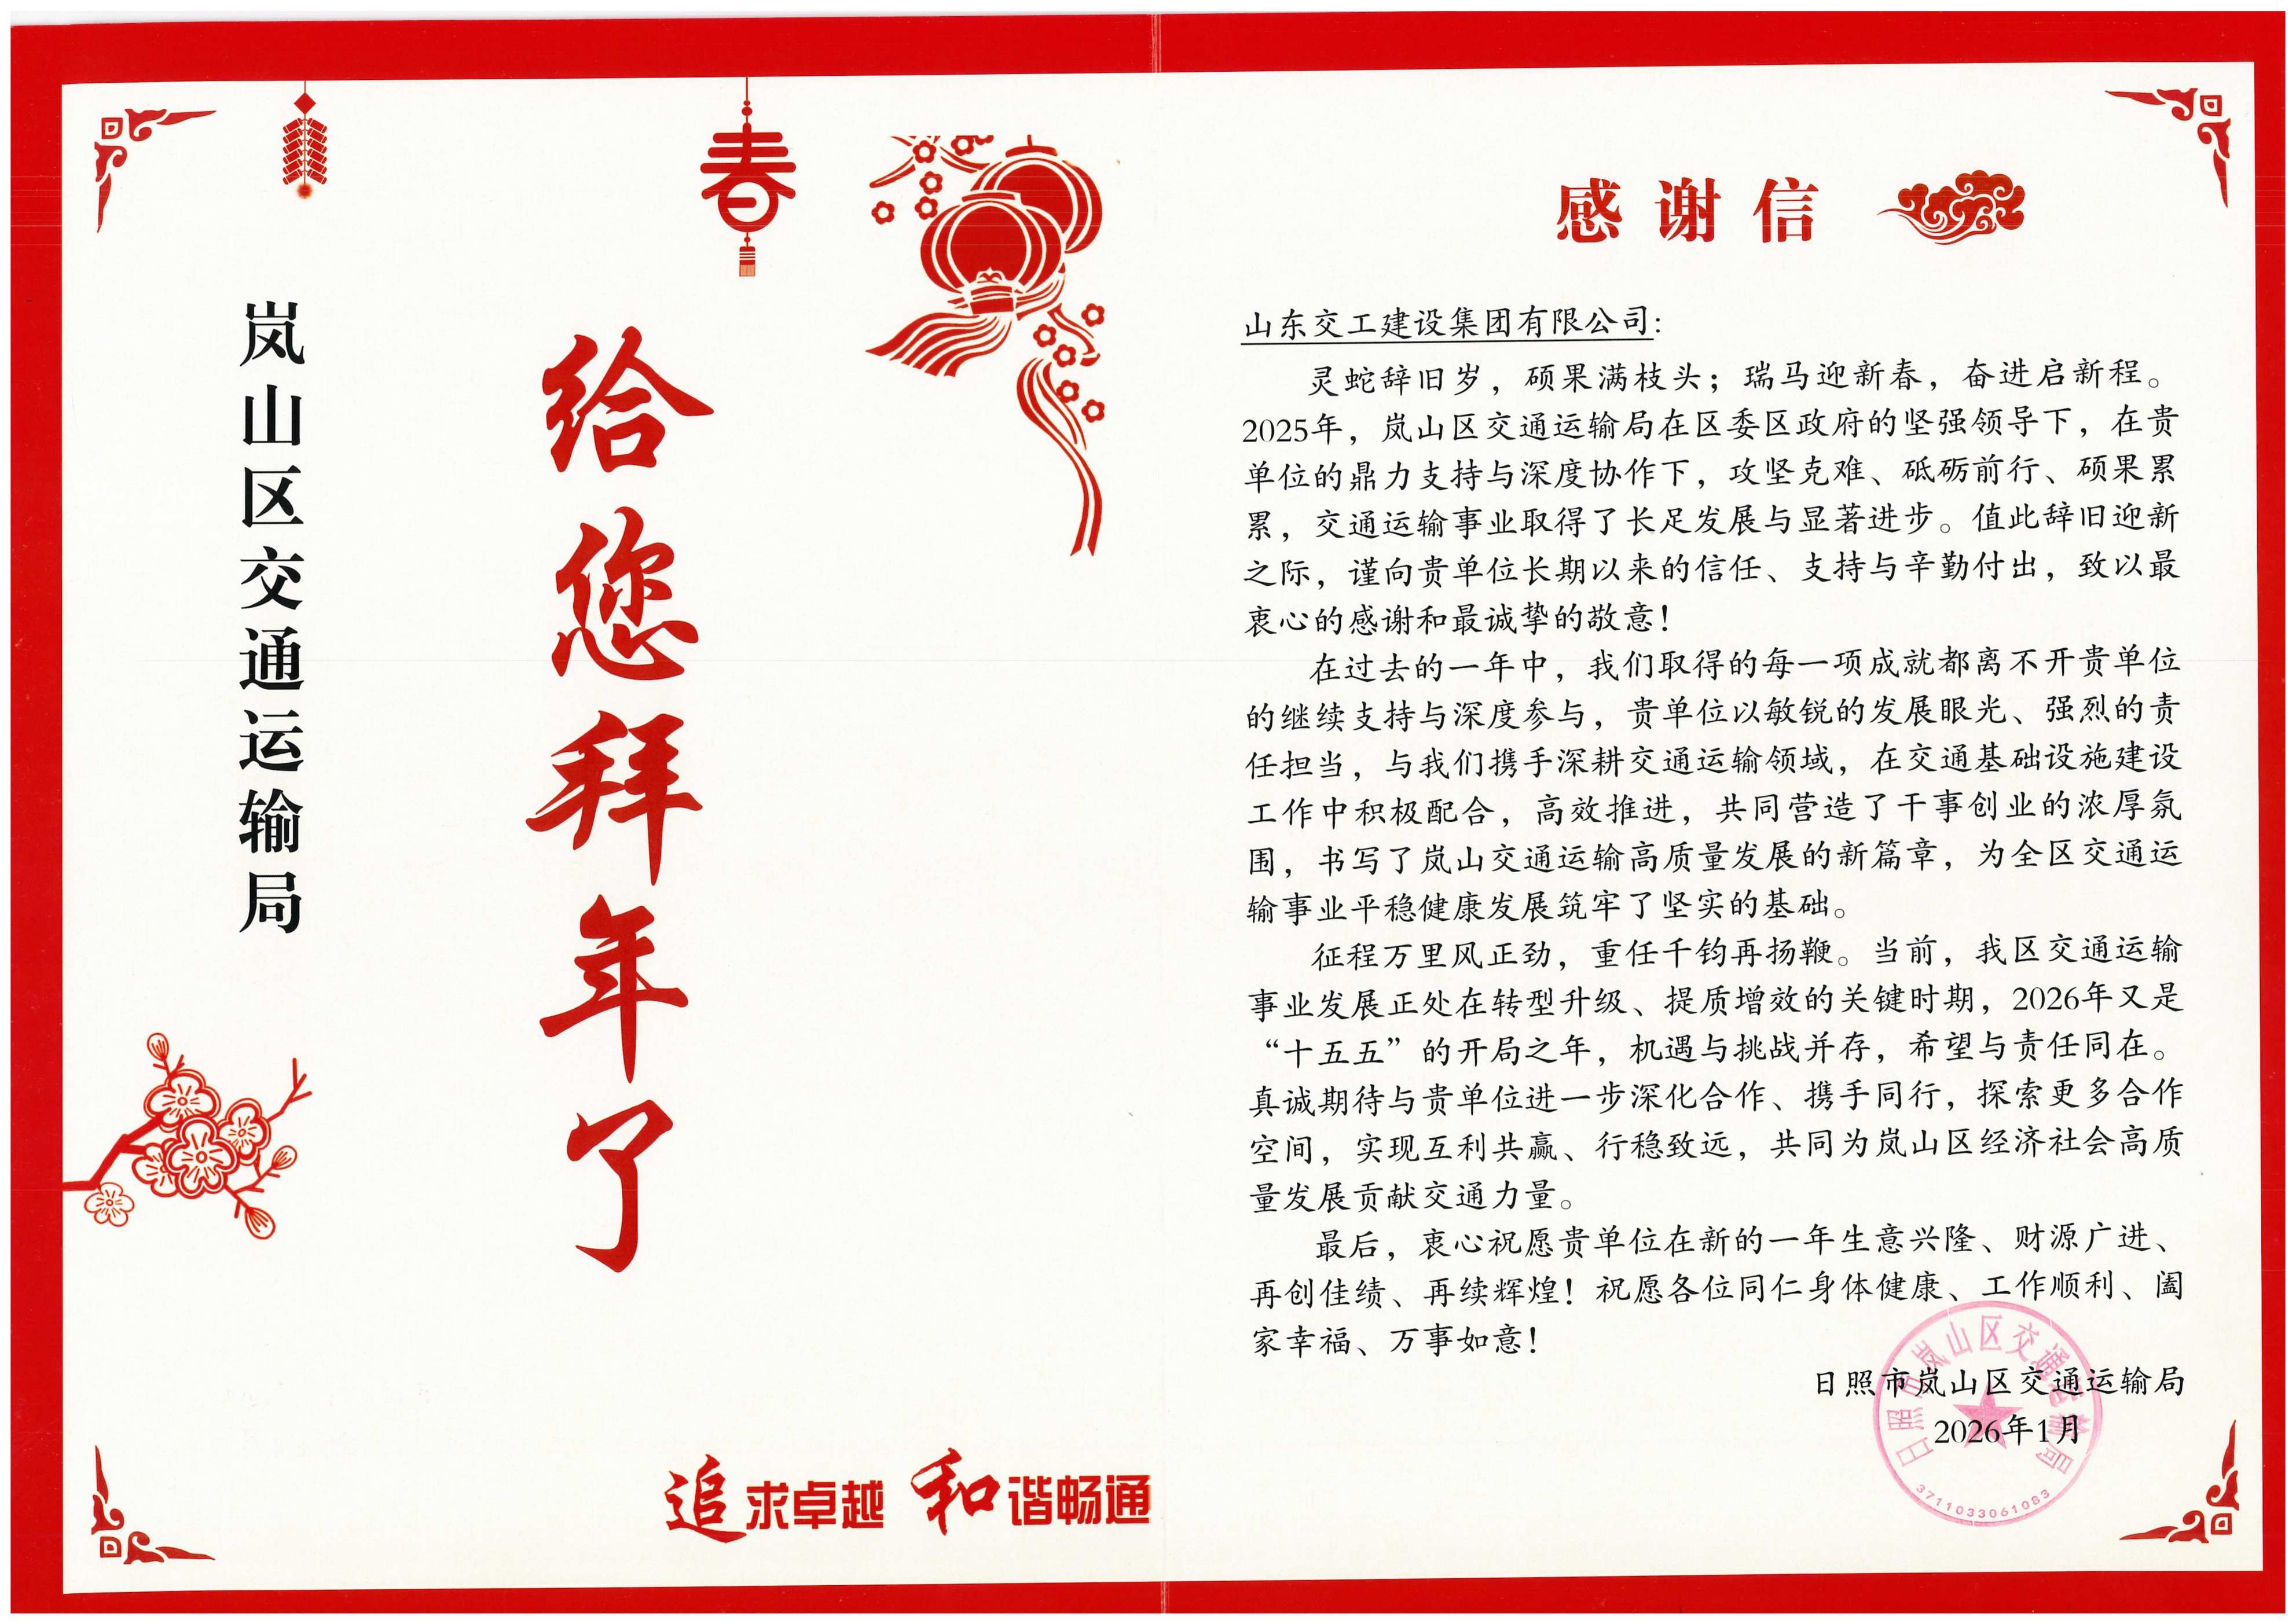 岚山区交通运输局
春
给您拜年了
追求卓越 和谐畅通
感谢信
山东交工建设集团有限公司：
灵蛇辞旧岁，硕果满枝头；瑞马迎新春，奋进启新程。
2025年，岚山区交通运输局在区委区政府的坚强领导下，在贵
单位的鼎力支持与深度协作下，攻坚克难、砥砺前行、硕果累
累，交通运输事业取得了长足发展与显著进步。值此辞旧迎新
之际，谨向贵单位长期以来的信任、支持与辛勤付出，致以最
衷心的感谢和最诚挚的敬意！
在过去的一年中，我们取得的每一项成就都离不开贵单位
的继续支持与深度参与，贵单位以敏锐的发展眼光、强烈的责
任担当，与我们携手深耕交通运输领域，在交通基础设施建设
工作中积极配合，高效推进，共同营造了干事创业的浓厚氛
围，书写了岚山交通运输高质量发展的新篇章，为全区交通运
输事业平稳健康发展筑牢了坚实的基础。
征程万里风正劲，重任千钧再扬鞭。当前，我区交通运输
事业发展正处在转型升级、提质增效的关键时期，2026年又是
“十五五”的开局之年，机遇与挑战并存，希望与责任同在。
真诚期待与贵单位进一步深化合作、携手同行，探索更多合作
空间，实现互利共赢、行稳致远，共同为岚山区经济社会高质
量发展贡献交通力量。
最后，衷心祝愿贵单位在新的一年生意兴隆、财源广进、
再创佳绩、再续辉煌！祝愿各位同仁身体健康、工作顺利、阖
家幸福、万事如意！
日照市岚山区交通运输局
2026年1月
日照市岚山区交通运输局
3711033061083